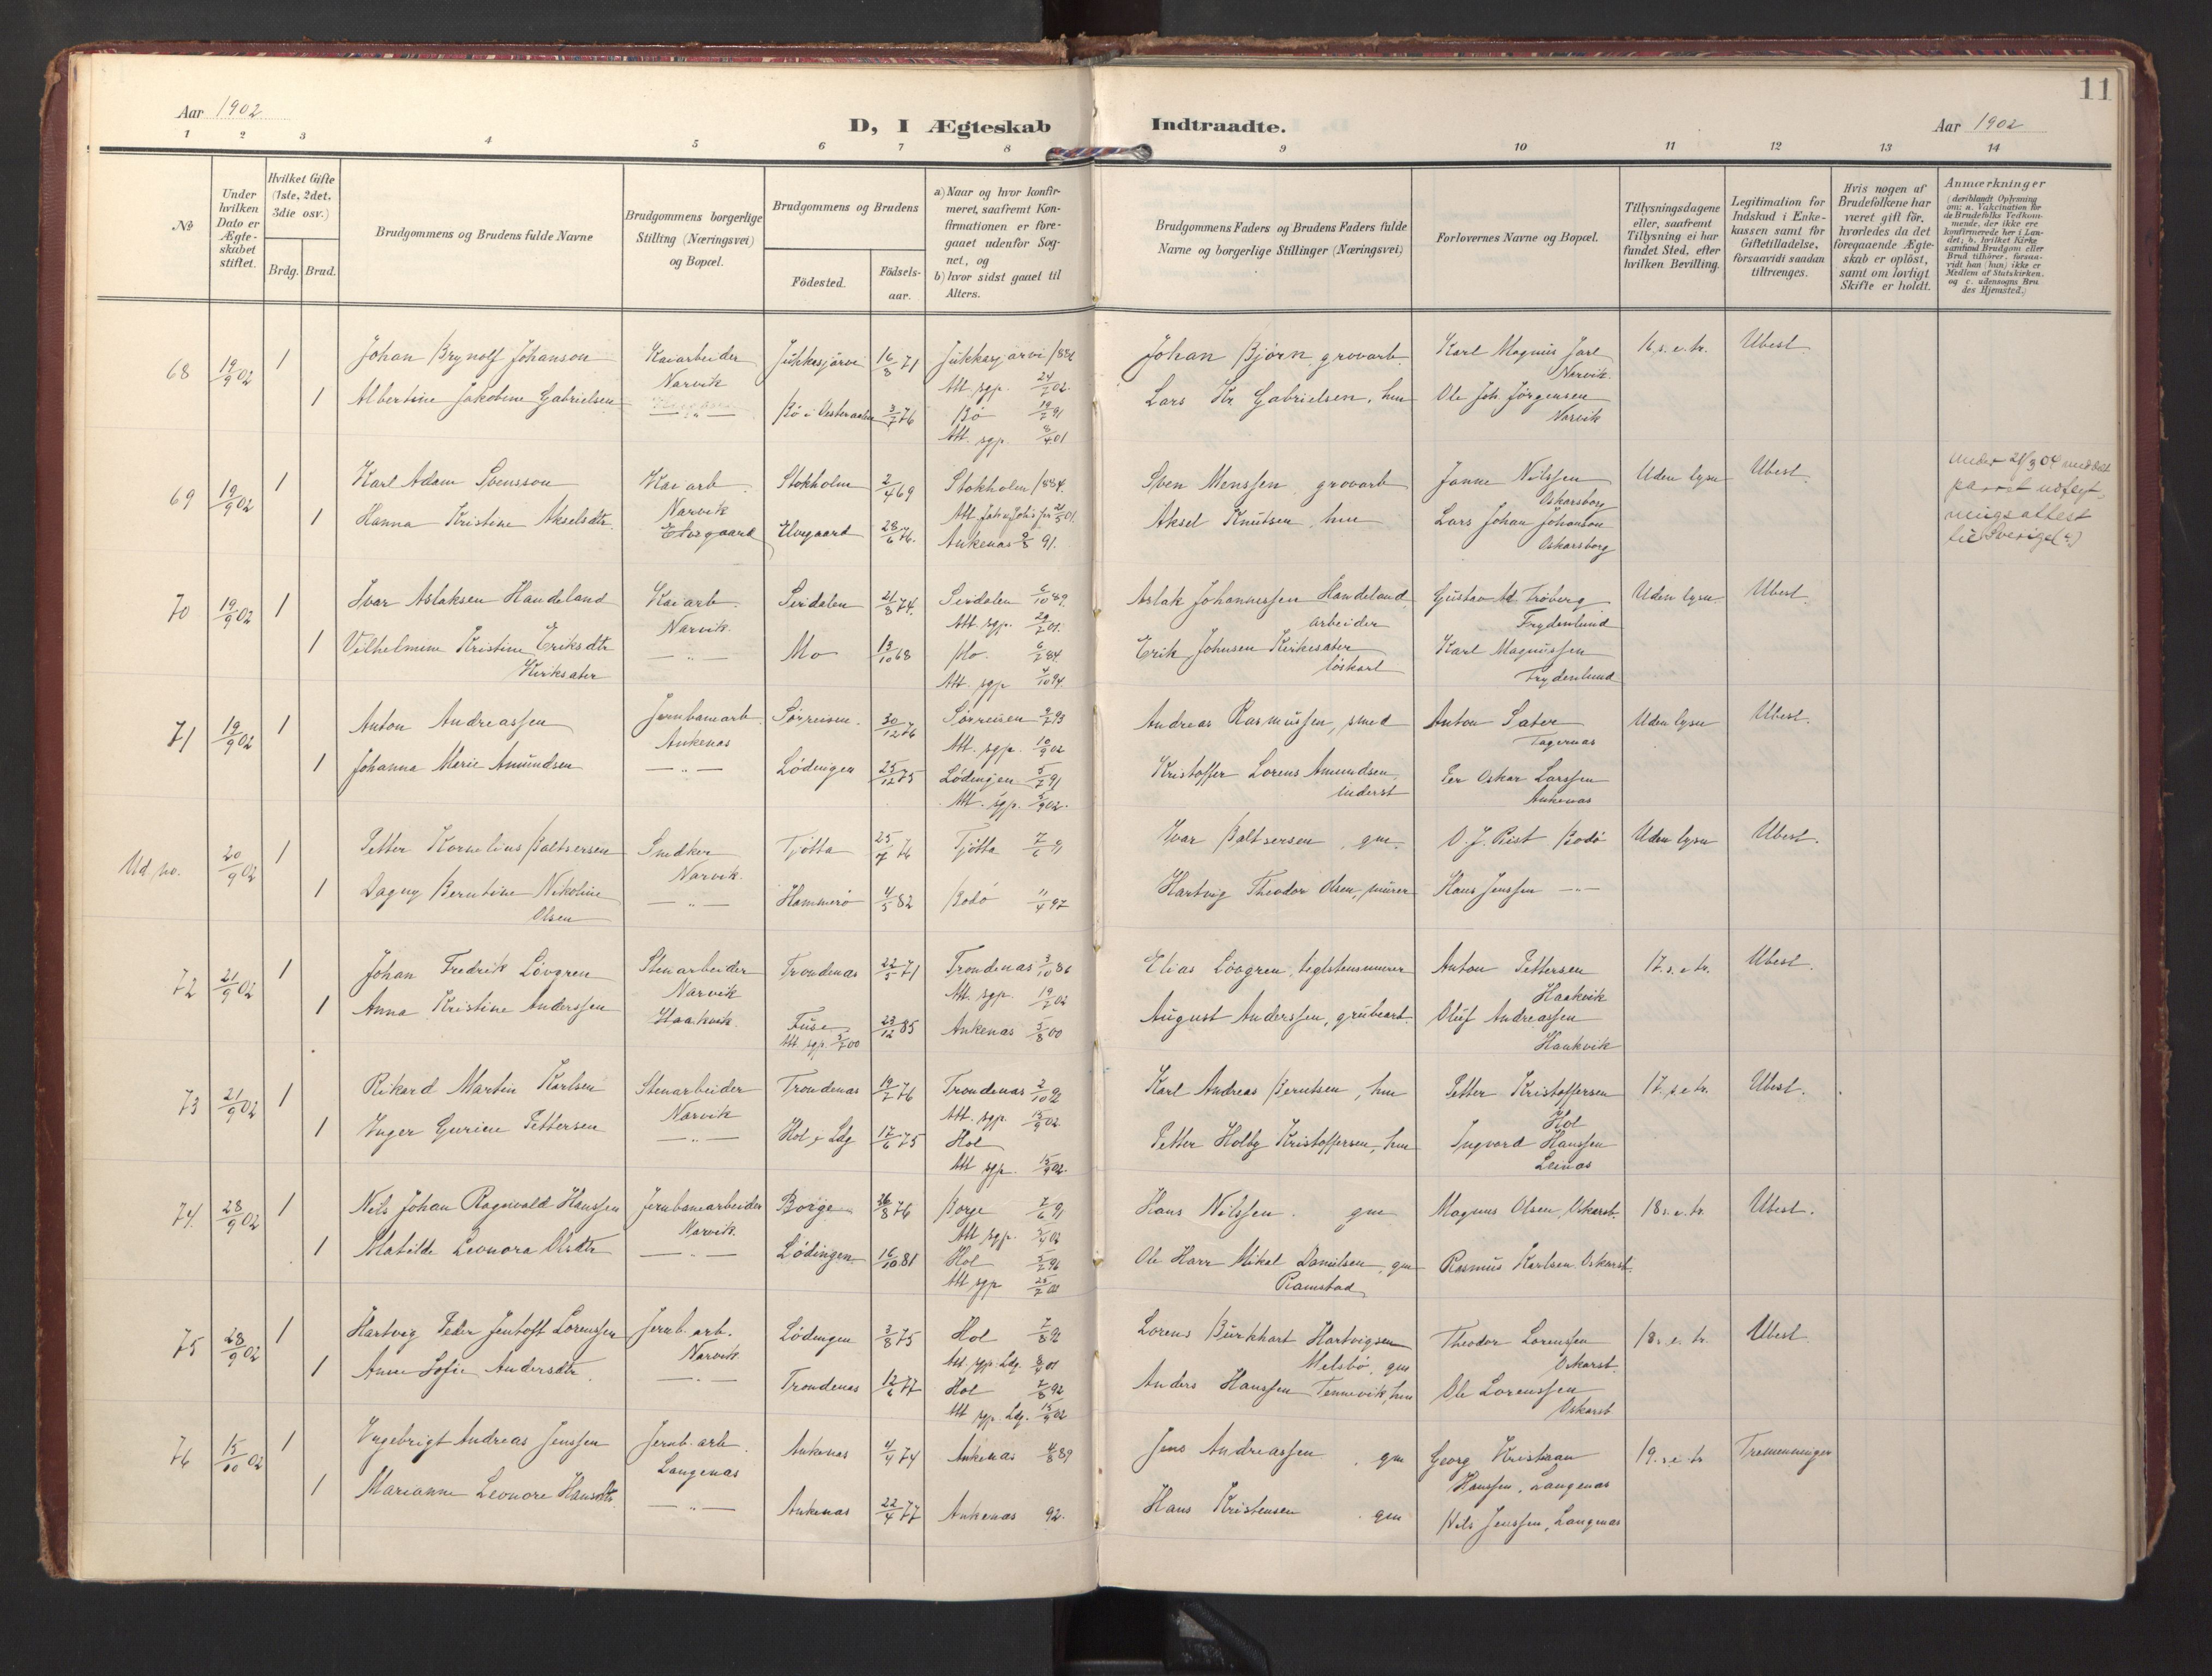 11
Aar 1902
D, I Ægteskab Indtraadte.
Aar 1902
1 2 3 4 5 6 7 8 9 10 11 12 13 14
№
Under hvilken Dato er Ægte-skabet stiftet.
Hvilket Gifte (1ste, 2det, 3die osv.)
Brdg. Brud.
Brudgommens og Brudens fulde Navne
Brudgommens borgerlige Stilling (Næringsvei) og Bopæl.
Brudgommens og Brudens
Födested.
Födsels-aar.
a) Naar og hvor konfir-meret, saafremt Kon-firmationen er fore-gaaet udenför Sog-net, og
b) hvor sidst gaaet til Alters.
Brudgommens Faders og Brudens Faders fulde Navne og borgerlige Stillinger (Næringsvei)
Forlovernes Navne og Bopæl.
Tillysningsdagene eller, saafremt Tillysning ei har fundet Sted, efter hvilken Bevilling.
Legitimation for Indskud i Enke-kassen samt for Giftetilladelse, forsaavidt saadan tiltrænges.
Hvis nogen af Brudefolkene har været gift för, hvorledes da det foregaaende Ægte-skab er oplöst, samt om lovligt Skifte er holdt.
Anmærkninger (deriblandt Oplysning om: a. Vakcination för de Brudefolks Vedkom-mende, der ikke ere konfirmerede her i Lan-det; b. hvilket Kirke samfund Brudgom eller Brud tilhörer, forsaa-vidt han (hun) ikke er Medlem af Statskirken, og c. udensogns Bru des Hjemsted.)
68 19/9 02 1 Johan Brynolf Johanson Kaiarbeider Jukkasjärvi 16/8 71 Jukkasjärvi 1886 Johan Björn grovarb. Karl Magnus Jarl 16 s. e. tr. Ubest.
Narvik Att. sgp. 24/7 02. Narvik.
1 Albertine Jakobine Gabrielsen — " — Bö i Vesteraalen 3/7 76 Bö 19/7 91 Lars Kr Gabrielsen, hm Ole Joh. Jörgensen
Att. sgp. 8/4 01 Narvik
69 19/9 02 1 Karl Adam Svensson Kaiarb. Stokholm 2/4 69 Stokholm 1884. Sven Menssen grovarb Janne Nilssen Uden lysn Ubest.
Narvik Oskarsborg
1 Hanna Kristine Akselsdtr. Elvegaard Elvegaard 28/6 76. Ankenas 9/8 91. Aksel Knutsen, hm Lars Johan Johanson
Oskarsborg
under 21/3 04 meddelt
parret udflyt-
ningsattest
til Sverige
70 19/9 02 1 Ivar Aslaksen Handeland Kaiarb. Sirdalen 21/8 74. Sirdalen 6/10 89. Aslak Johannessen Handeland Gustav Ad. Fröberg Uden lysn. Ubest.
Narvik. Att. sgp. 29/7 01. arbeider Frydenlund
1 Vilhelmine Kristine Eriksdtr — " — Mo 13/10 68 Mo. 6/7 84. Erik Johnsen Kirkesæter Karl Magnussen
Kirksæter Att. sgp 4/10 94. löskarl Frydenlund
71 19/9 02 1 Anton Andreassen Jernbanearb. Sörreisen. 30/12 76 Sörreisen 9/7 93 Andreas Rasmussen, smed Anton Sæter Uden lysn Ubest.
Ankenas Att. sgp. 10/9 02 Fagernas
1 Johanna Marie Amundsen — " — Lödingen 25/12 75 Lödingen 5/7 91 Kristoffer Lorens Amundsen, Per Oskar Larssen
Att. sgp. 5/9 02. inderst Ankenas
Ud no. 20/9 02 1 Petter Kornelius Baltsersen Snedker Tjötta 25/7 76 Tjötta 7/6 91 Ivar Baltsersen, gm. O. J. Rist Bodö Uden lysn Ubest.
Narvik.
1 Dagny Berntine Nikoline — " — Hammerö 4/5 82 Bodö 11/4 97 Hartvig Theodor Olsen, murer Hans Jenssen — " —
Olsen
72 21/9 02 1 Johan Fredrik Lövgren Stenarbeider Trondenas 22/5 71 Trondenas 3/10 86 Elias Lövgren, teglstensmurer Anton Pettersen 17. s. e. tr. Ubest.
Narvik Att. sgp. 19/7 02 Haakvik
1 Anna Kristine Anderssen Haakvik. Fuse 23/12 85 Ankenas 5/8 00 August Anderssen, grubearb. Oluf Andreassen
Att. sgp. 5/7 00 Haakvik
73 21/9 02 1 Rikard Martin Karlsen Stenarbeider Trondenas 19/7 76 Trondenas 2/10 92 Karl Andreas Berntsen, hm Petter Kristoffersen 17. s. e. tr. Ubest.
Narvik Att. sgp. 15/9 02. Hol
1 Inger Gurine Pettersen — " — Hol i Ldg 17/6 75 Hol Petter Holbg Kristoffersen, hm Ingvard Hanssen
Att sgp. 15/9 02. Leinas
74. 28/9 02 1 Nils Johan Ragnvald Hanssen Jernbanearbeider Borge 26/8 76 Borge 7/6 91 Hans Nilssen. gm Magnus Olsen, Oskarsb. 18 s. e. tr. Ubest.
Narvik. Att sgp.
1 Matilde Leonora Olsdtr — " — Lödingen 16/10 81 Hol 5/7 96 Ole Harr Mikal Danielsen, gm Rasmus Karlsen Oskarsb.
Att sgp Ramstad
75 28/9 02 1 Hartvig Peder Jentoft Lorenssen Jernb. arb. Lödingen 3/8 75 Hol 7/8 92 Lorens Burkhart Hartvigsen Theodor Lorenssen 18. s. e. tr. Ubest
Narvik Att. sgp. Ldg. Melsbö, gm Oskarsb.
1 Anne Sofie Andersdtr. — " — Trondenas 12/6 77 Hol 7/8 92 Anders Hanssen Tennevik, hm Ole Lorenssen
Att sgp. Ldg. 15/9 02 Oskarsb
76 15/10 02 1 Ingebrigt Andreas Jenssen Jernb. arb. Ankenas 4/4 74 Ankenas 4/8 89 Jens Andreassen, gm Georg Kristian 19. s. e. tr Tremenninger
Langenas Hanssen, Langenas
1 Marianne Leonore Hansdtr. — " — Ankenas 22/4 77 Ankenas 92. Hans Kristensen. gm Nils Jenssen, Langenas